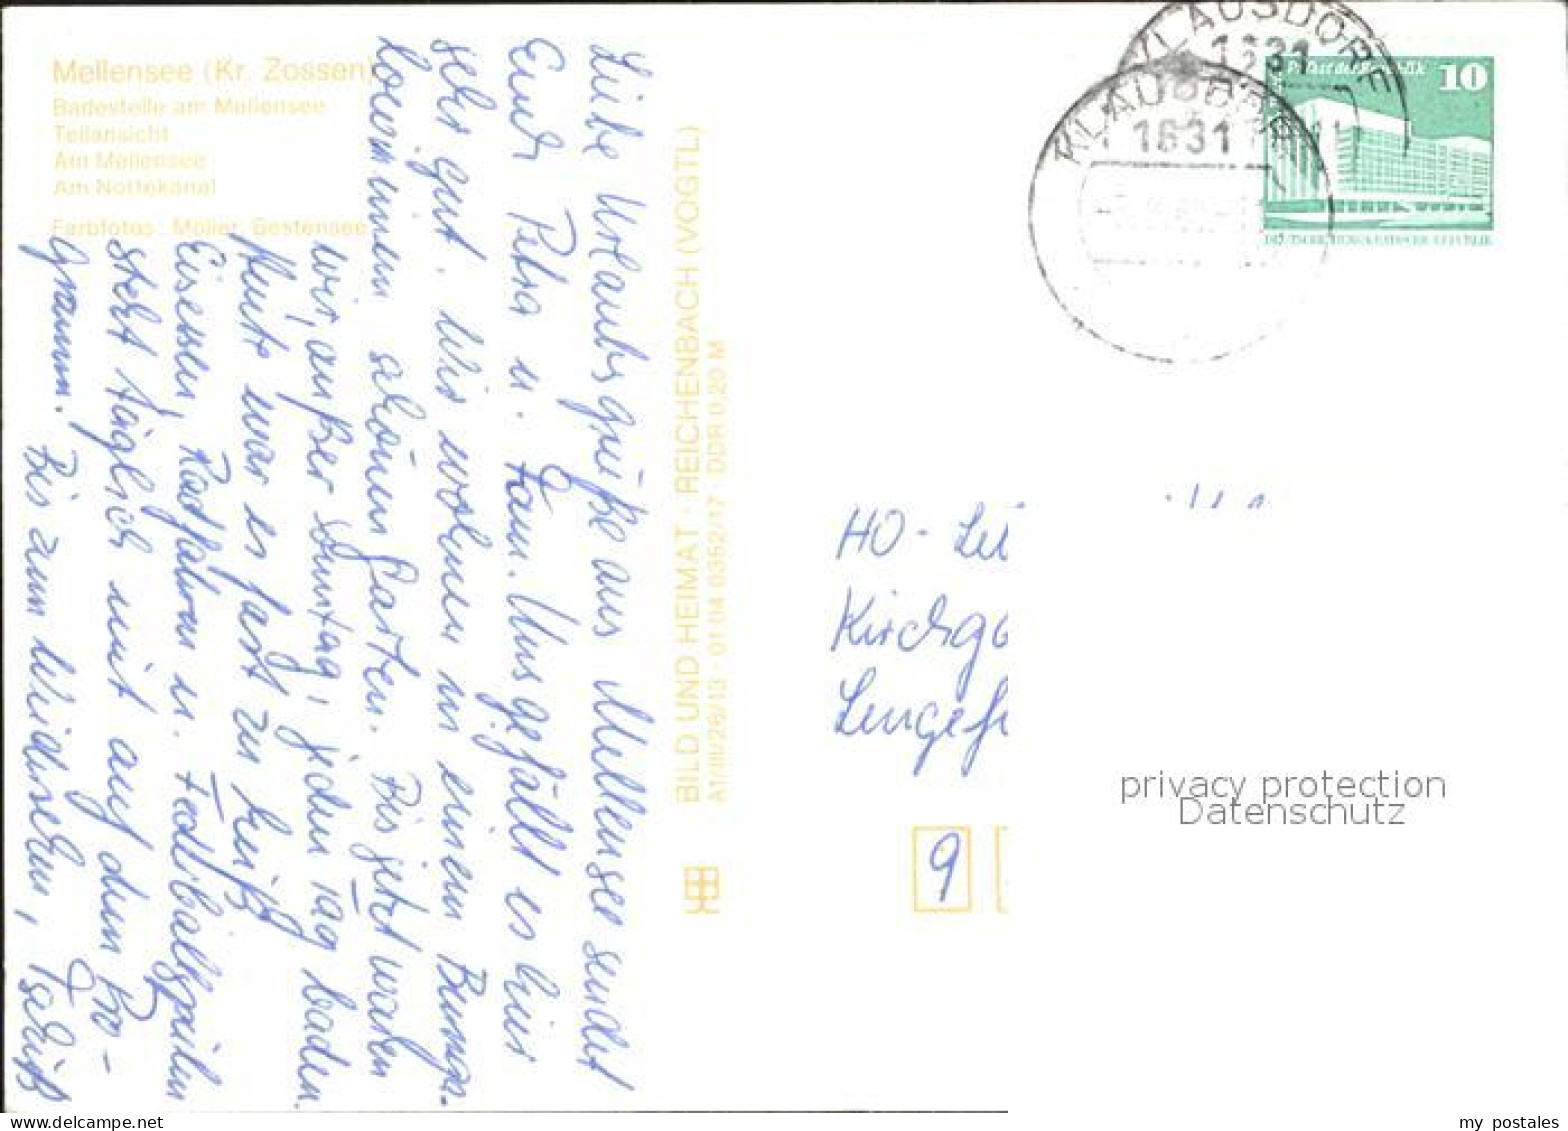 Mellensee (Kr. Zossen)
Badestelle am Mellensee
Teilansicht
Am Mellensee
Am Nottekanal
Farbfotos: Möller, Bestensee
Liebe Urlaubsgrüße aus Mellensee sendet
Euch Petra u. Fam. Uns gefällt es hier
sehr gut. Wir wohnen in einem Bunga-
low mit einem schönen Garten. Bis jetzt waren
wir, außer Sonntag, jeden Tag baden.
Heute war es fast zu heiß
Eisessen, Radfahren u. Federballspielen
steht täglich mit auf dem Pro-
gramm. Bis zum Wiedersehen, Tschüß
BILD UND HEIMAT · REICHENBACH (VOGTL)
A1/III/26/13 · 01 04 0352/17 · DDR 0,20 M
KLAUSDORF
1631
KLAUSDORF
1631
Palast der Republik 10
DEUTSCHE DEMOKRATISCHE REPUBLIK
HO-
Kirchg
Lengef
9
privacy protection
Datenschutz
my postales